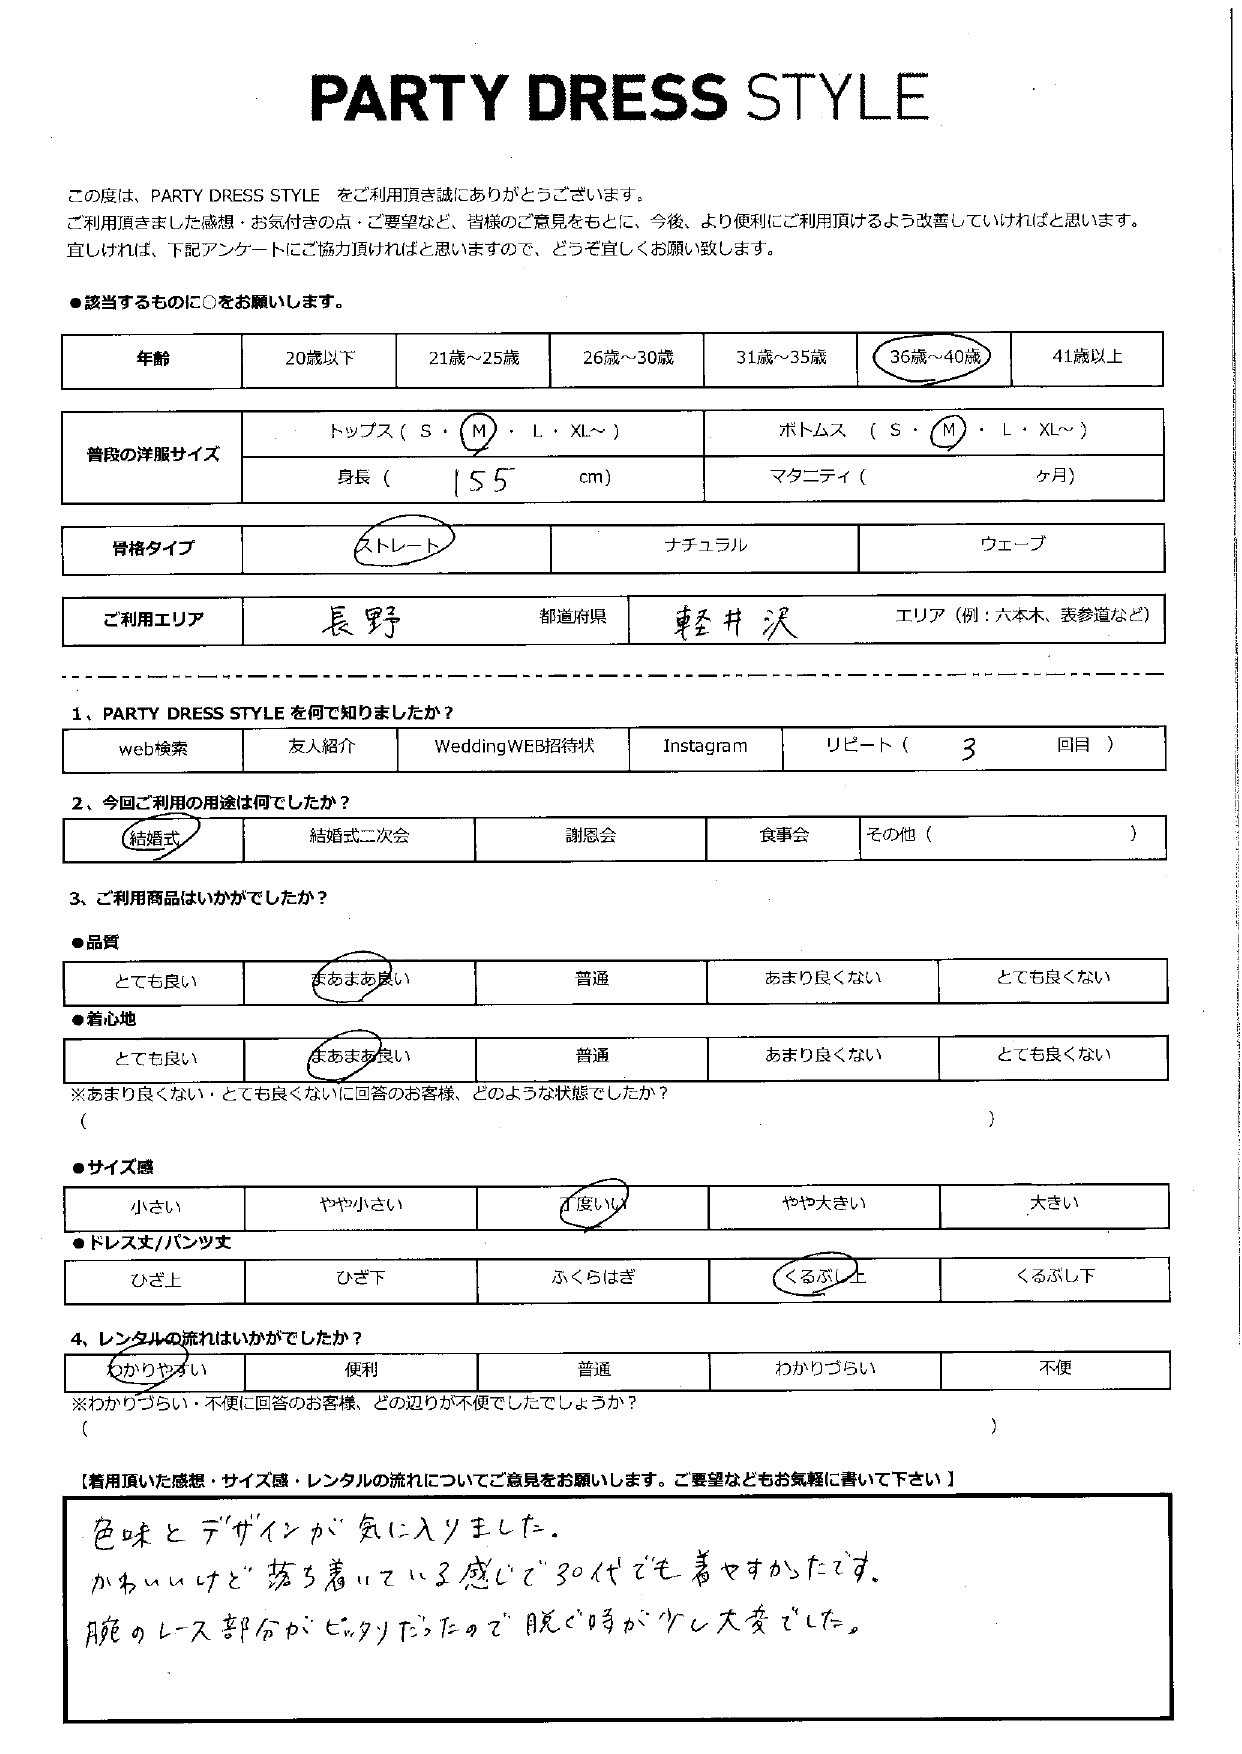 PARTY DRESS STYLE
この度は、PARTY DRESS STYLE をご利用頂き誠にありがとうございます。
ご利用頂きました感想・お気付きの点・ご要望など、皆様のご意見をもとに、今後、より便利にご利用頂けるよう改善していければと思います。
宜しければ、下記アンケートにご協力頂ければと思いますので、どうぞ宜しくお願い致します。
●該当するものに○をお願いします。
年齢 20歳以下 21歳～25歳 26歳～30歳 31歳～35歳 36歳～40歳 41歳以上
普段の洋服サイズ
トップス ( S ・ M ・ L ・ XL～ ) ボトムス ( S ・ M ・ L ・ XL～ )
身長 ( 155 cm) マタニティ ( ヶ月)
骨格タイプ ストレート ナチュラル ウェーブ
ご利用エリア 長野 都道府県 軽井沢 エリア（例：六本木、表参道など）
1、PARTY DRESS STYLE を何で知りましたか？
web検索 友人紹介 WeddingWEB招待状 Instagram リピート ( 3 回目 )
2、今回ご利用の用途は何でしたか？
結婚式 結婚式二次会 謝恩会 食事会 その他 ( )
3、ご利用商品はいかがでしたか？
●品質
とても良い まあまあ良い 普通 あまり良くない とても良くない
●着心地
とても良い まあまあ良い 普通 あまり良くない とても良くない
※あまり良くない・とても良くないに回答のお客様、どのような状態でしたか？
( )
●サイズ感
小さい やや小さい 丁度いい やや大きい 大きい
●ドレス丈/パンツ丈
ひざ上 ひざ下 ふくらはぎ くるぶし上 くるぶし下
4、レンタルの流れはいかがでしたか？
わかりやすい 便利 普通 わかりづらい 不便
※わかりづらい・不便に回答のお客様、どの辺りが不便でしたでしょうか？
( )
【着用頂いた感想・サイズ感・レンタルの流れについてご意見をお願いします。ご要望などもお気軽に書いて下さい】
色味とデザインが気に入りました。
かわいいけど落ち着いている感じで30代でも着やすかったです。
腕のレース部分がピッタリだったので脱ぐ時が少し大変でした。